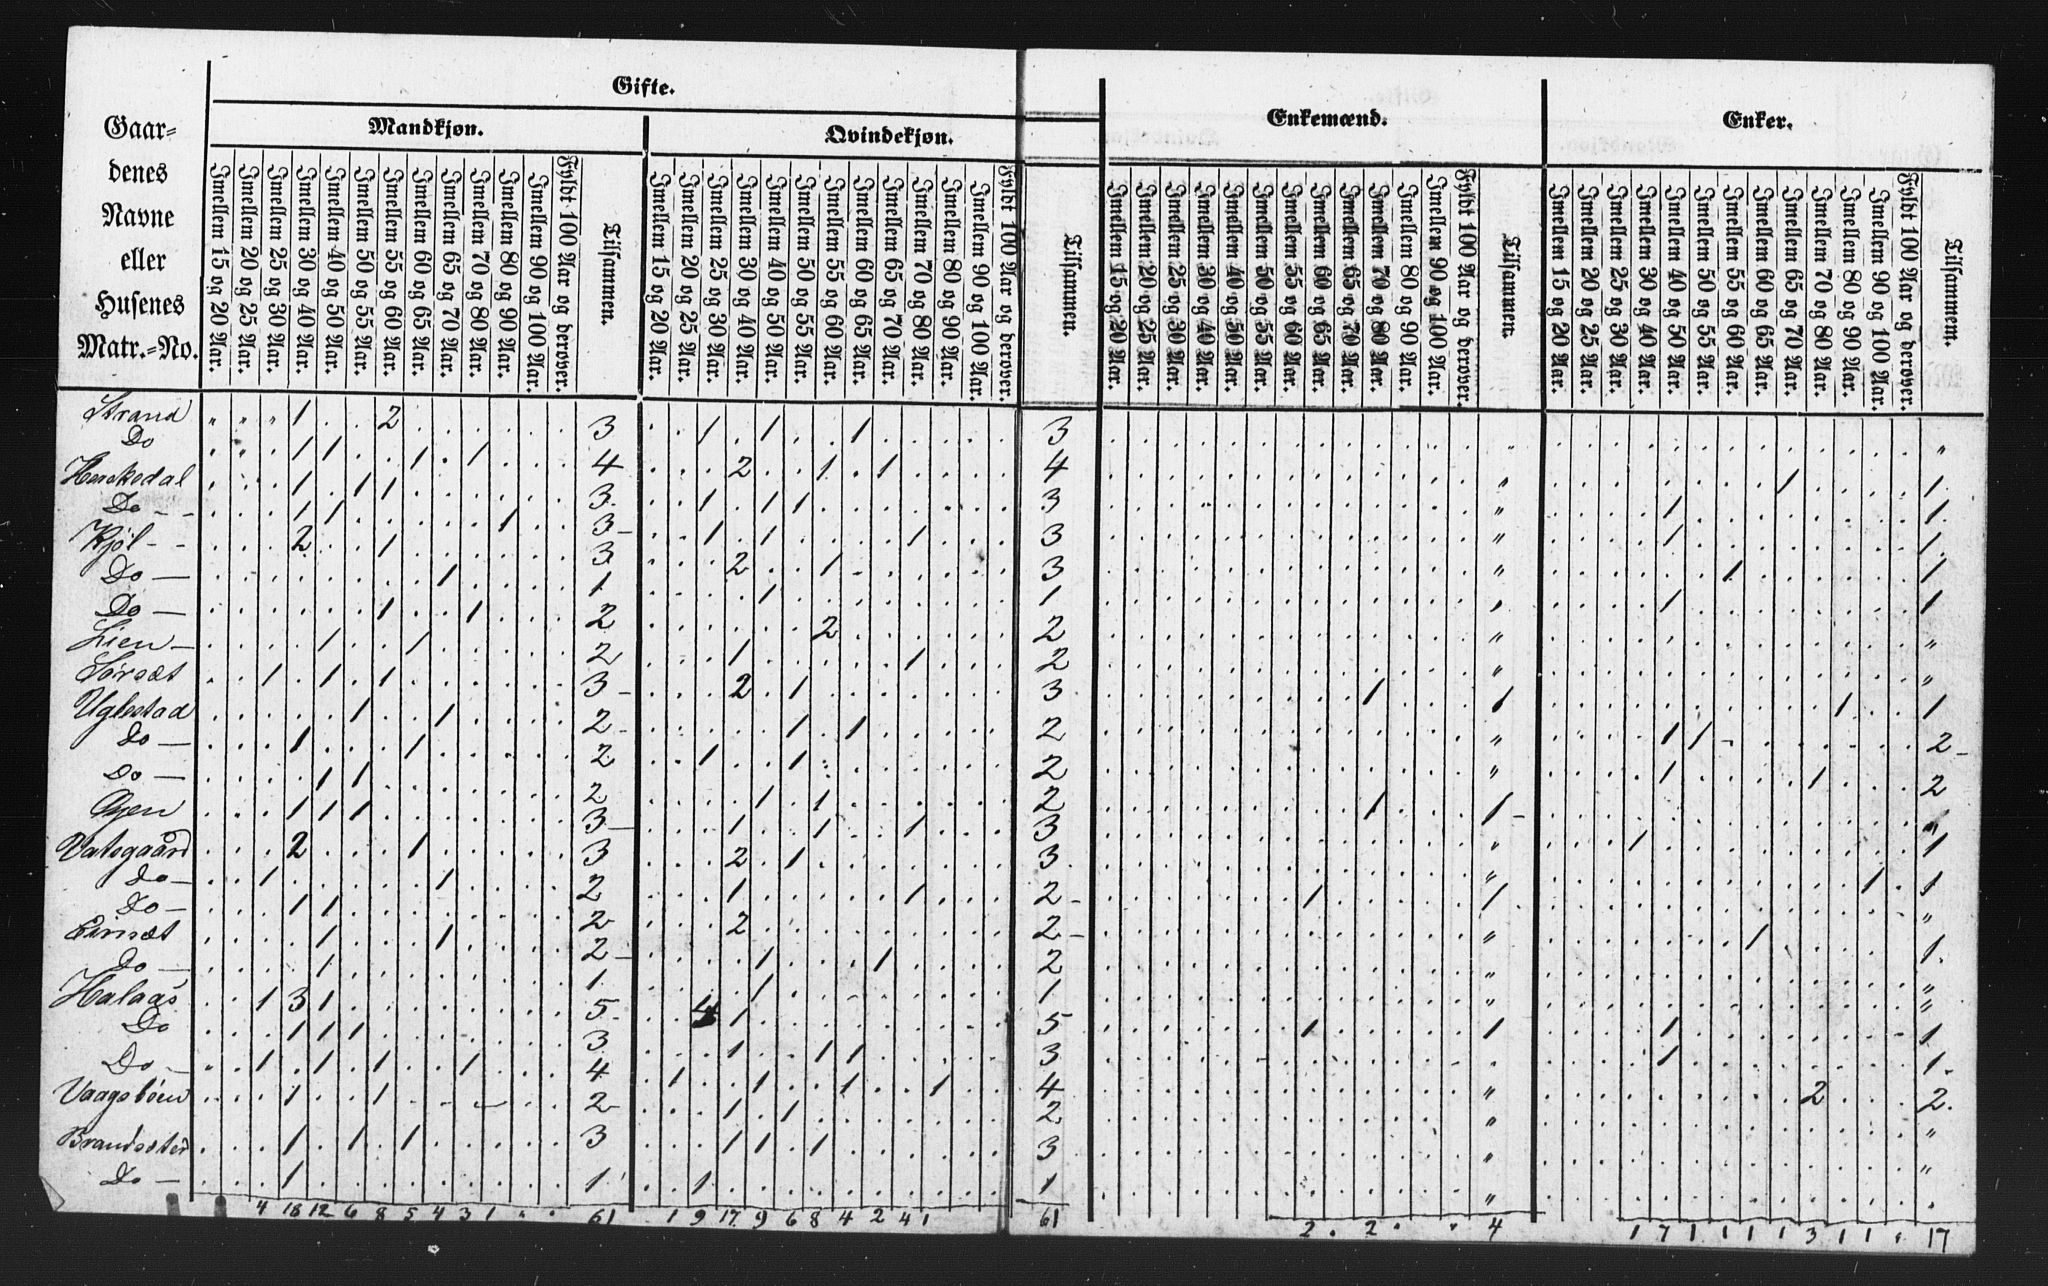 Gifte.
Enkemænd.
Enker.
Mandkjøn.
Qvindekjøn.
Gaar-
denes
Navne
eller
Husenes
Matr.-No.
Imellem 15 og 20 Aar.
Imellem 20 og 25 Aar.
Imellem 25 og 30 Aar.
Imellem 30 og 40 Aar.
Imellem 40 og 50 Aar.
Imellem 50 og 55 Aar.
Imellem 55 og 60 Aar.
Imellem 60 og 65 Aar.
Imellem 65 og 70 Aar.
Imellem 70 og 80 Aar.
Imellem 80 og 90 Aar.
Imellem 90 og 100 Aar.
Fyldt 100 Aar og derover.
Tilsammen.
Imellem 15 og 20 Aar.
Imellem 20 og 25 Aar.
Imellem 25 og 30 Aar.
Imellem 30 og 40 Aar.
Imellem 40 og 50 Aar.
Imellem 50 og 55 Aar.
Imellem 55 og 60 Aar.
Imellem 60 og 65 Aar.
Imellem 65 og 70 Aar.
Imellem 70 og 80 Aar.
Imellem 80 og 90 Aar.
Imellem 90 og 100 Aar.
Fyldt 100 Aar og derover.
Tilsammen.
Imellem 15 og 20 Aar.
Imellem 20 og 25 Aar.
Imellem 25 og 30 Aar.
Imellem 30 og 40 Aar.
Imellem 40 og 50 Aar.
Imellem 50 og 55 Aar.
Imellem 55 og 60 Aar.
Imellem 60 og 65 Aar.
Imellem 65 og 70 Aar.
Imellem 70 og 80 Aar.
Imellem 80 og 90 Aar.
Imellem 90 og 100 Aar.
Fyldt 100 Aar og derover.
Tilsammen.
Imellem 15 og 20 Aar.
Imellem 20 og 25 Aar.
Imellem 25 og 30 Aar.
Imellem 30 og 40 Aar.
Imellem 40 og 50 Aar.
Imellem 50 og 55 Aar.
Imellem 55 og 60 Aar.
Imellem 60 og 65 Aar.
Imellem 65 og 70 Aar.
Imellem 70 og 80 Aar.
Imellem 80 og 90 Aar.
Imellem 90 og 100 Aar.
Fyldt 100 Aar og derover.
Tilsammen.
Strand " " " 1 2 3 1 1 1 3 "
Do " " 1 1 1 1 4 2 1 1 4 " 1 1
Herskedal 1 1 1 3 1 1 1 3 " 1 1
Do 1 1 1 3 1 1 1 3 " 1 1
Kjøl 2 1 3 2 1 3 " 1 1
Do 1 1 1 1 " 1 1
Do 1 1 2 2 2 " "
Lien 1 1 2 1 1 2 " "
Sørsæt 1 1 1 3 2 1 3 1 1 1 1
Uglestad 1 1 2 1 1 2 " 1 1 2
Do 1 1 2 1 1 2 " 1 1 2
Do 1 1 2 1 1 2 1 1 "
1 1 1 3 1 1 1 3 " 1 1
Vatsgaard 2 1 3 2 1 3 " 1 1
Do 1 1 2 1 1 2 1 1 "
Do 1 1 2 2 2 " 1 1
1 1 2 1 1 2 " "
Do 1 1 1 1 " "
Halaas 1 3 1 5 4 1 5 1 1 1 1
Do 1 1 1 3 1 1 1 3 1 1
Do 1 1 1 1 4 1 1 1 1 4 " 2 2
Vaagsbøen 1 1 2 1 1 2 " "
1 1 1 3 1 1 1 3 " "
Do 1 1 1 1 "
4 18 12 6 8 5 4 3 1 61 1 9 17 9 6 8 4 2 4 1 61 2 2 4 1 7 1 1 1 1 3 1 1 17